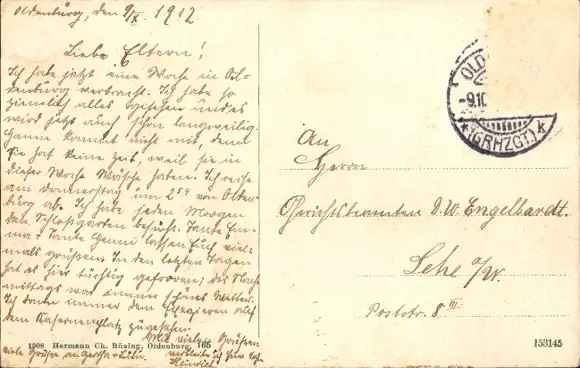 Oldenburg, den 9/X. 1912
Liebe Eltern!
Ich habe jetzt eine Woche in Ol-
denburg verbracht. Ich habe so
ziemlich alles gesehen und es
wird jetzt auch schon langweilig.
Hanne kommt nicht mit, denn
sie hat keine Zeit, weil sie in
dieser Woche Wäsche haben. Ich reise
am Donnerstag um 2 54 von Olden-
burg ab. Ich habe jeden Morgen
den Schloßgarten besucht. Tante Em-
ma & Tante Henni lassen Euch viel-
mals grüßen. In den letzten Tagen
hat es hier tüchtig gefroren; des Nach-
mittags war immer schönes Wetter.
Ich habe immer dem Exerzieren auf
dem Kasernenplatz zugesehen.
Mit vielen Grüßen
verbleibe ich Euer Sohn
Heinrich
viele Grüße an Gertha & Lilli.
1908 Hermann Ch. Büsing, Oldenburg. 165
OLD
-9.10
*(GRHZGT.) k
An
Herrn
Gerichtsbeamten D.W. Engelbardt.
Lehe a/W.
Poststr. 8 III
153145